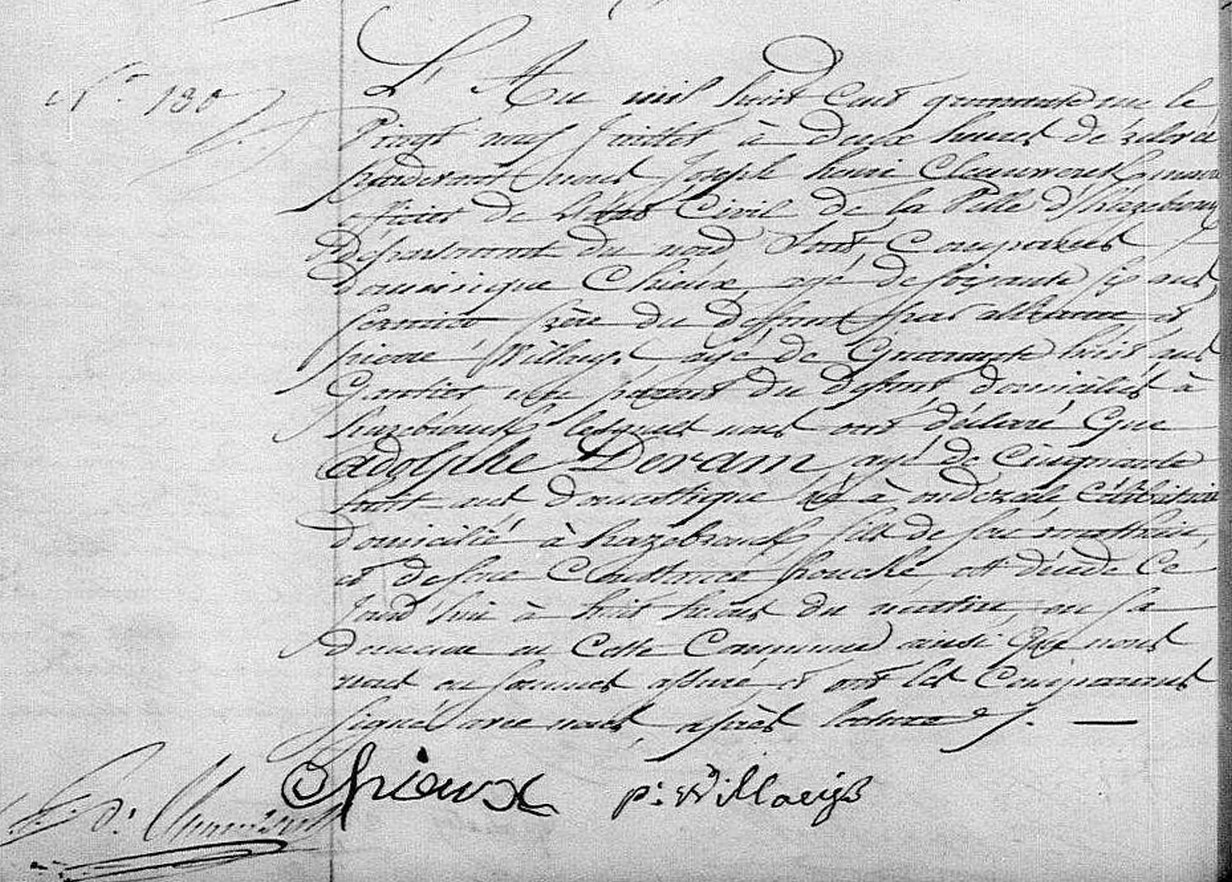 N.° 180
L'An mil huit Cent quarante un le
Vingt neuf Juillet à Deux heures de relevé
pardevant nous Joseph henri
officier de l'état Civil de la Ville d'hazebrouck
Département du nord Sont Comparus
Dominique Chieux, agé de soixante six ans
fermier frère du défunt par alliance et
pierre Willaeys agé de Quarante huit ans
du défunt, domiciliés à
hazebrouck lesquels nous ont déclaré Que
Adolphe Deram agé de Cinquante
huit ans Domestique né à ondezeele Célibataire
domicilié à hazebrouck fils de feu mathieu,
et de feue Constance est décédé Ce
Jourd'hui à huit heures du matin, en sa
demeure en Cette Commune ainsi Que nous
nous en sommes assuré et ont les Comparants
signé avec nous, après lecture ./. —
Chieux p: Willaeys